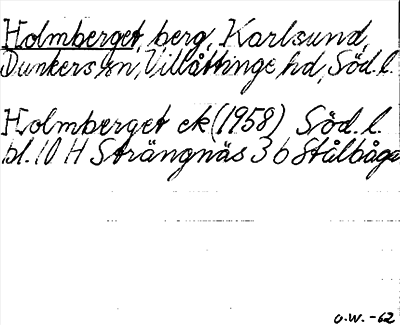 Holmberget, berg, Karlsund,
Dunkers sn, Villåttinge hd, Söd. l.
Holmberget ek (1958) Söd. l.
bl. 10 H Strängnäs 3 b Stålboga
O.W. -62